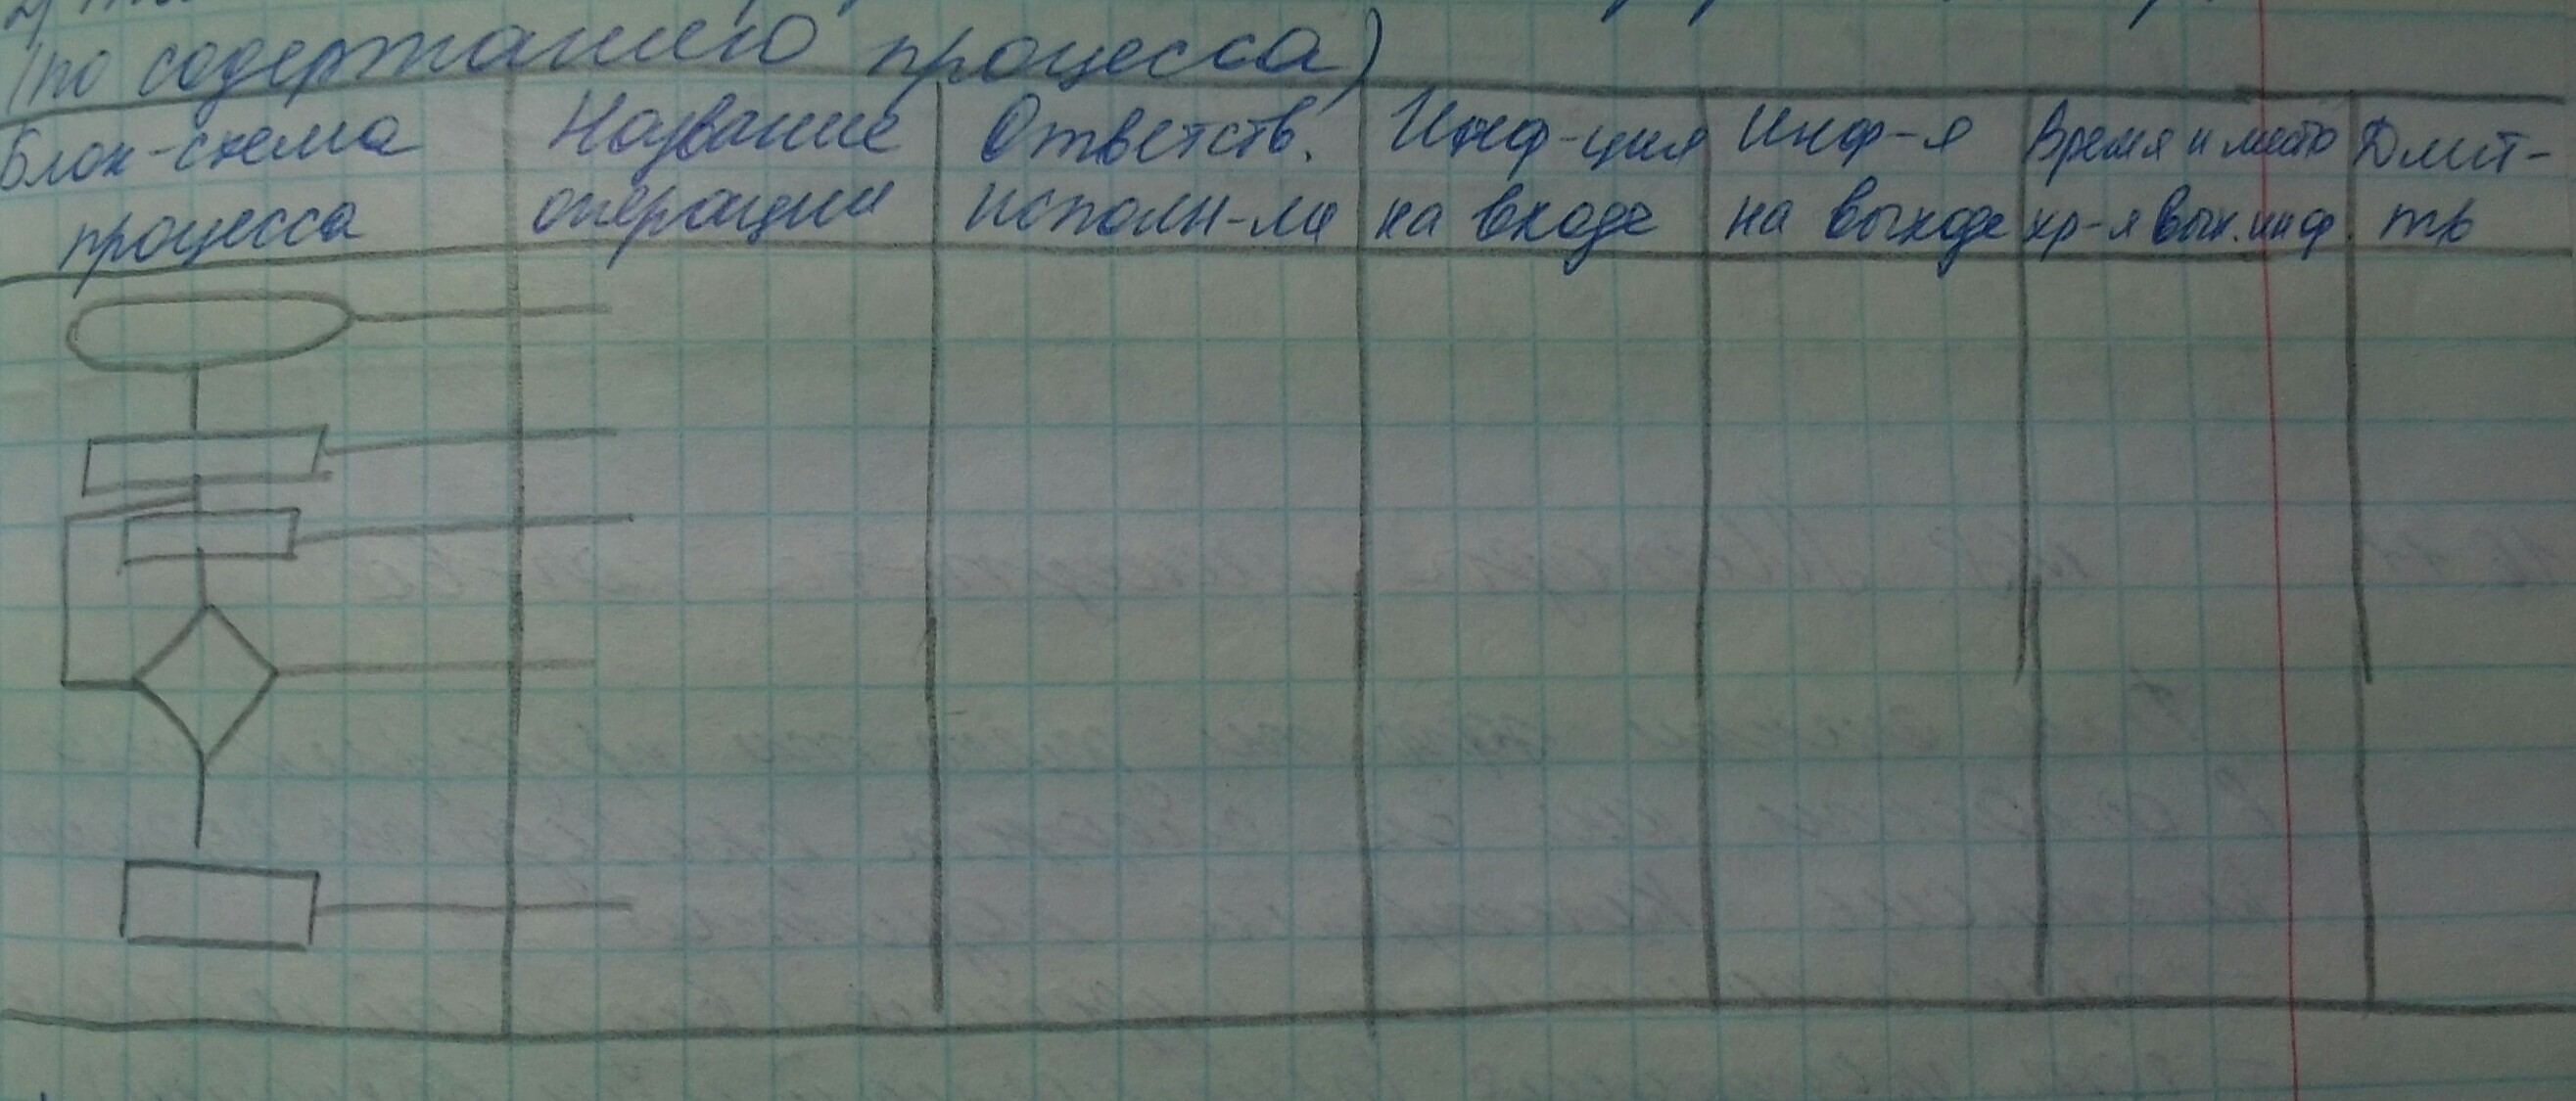 (по содержанию процесса)
Блок-схема процесса
Название операции
Ответств. исполн-ли
Инф-ция на входе
Инф-я на выходе
Время и место хр-я вых. инф.
Длит-ть